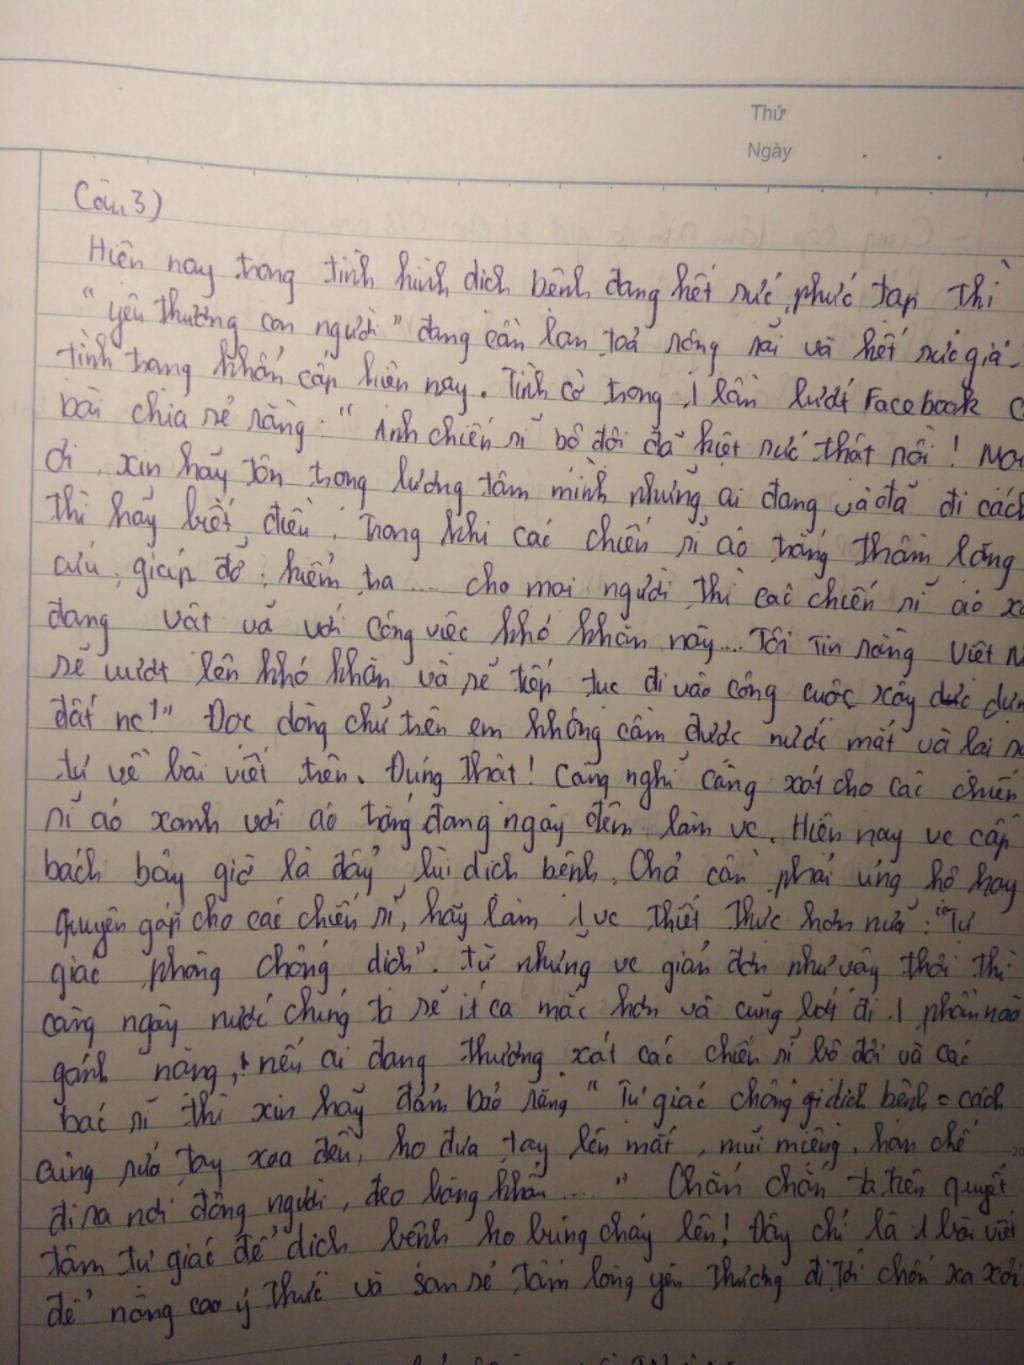 Thứ
Ngày
Câu 3)
Hiện nay trong tình hình dịch bệnh đang hết sức phức tạp thì
"yêu thương con người" đang cần lan toả rộng rãi và hết sức giá
tình trạng khẩn cấp hiện nay. Tình cờ trong 1 lần lướt Facebook
bài chia sẻ rằng: "Anh chiến sĩ bộ đội đã kiệt sức thật rồi!
ơi, xin hãy tôn trọng lương tâm mình những ai đang và đã đi cách
thì hãy biết điều. Trong khi các chiến sĩ áo trắng thầm lặng
cứu, giúp đỡ, kiểm tra.... cho mọi người thì các chiến sĩ áo
đang vật vả với công việc khó khăn này.... Tôi tin rằng Việt
sẽ vượt lên khó khăn và sẽ tiếp tục đi vào công cuộc xây
đất nc!" Đọc dòng chữ trên em không cầm được nước mắt và lại
tư về bài viết trên. Đúng thật! Càng nghĩ càng xót cho các chiến
sĩ áo xanh với áo trắng đang ngày đêm làm vc. Hiện nay vc cấp
bách bây giờ là đẩy lùi dịch bệnh. Chả cần phải ủng hộ hay
quyên góp cho các chiến sĩ, hãy làm 1 vc thiết thực hơn nữa: "Tự
giác phòng chống dịch". Từ những vc giản đơn như vậy thôi thì
càng ngày nước chúng ta sẽ ít ca mắc hơn và cũng bớt đi 1 phần nào
gánh nặng, nếu ai đang thương xót các chiến sĩ bộ đội và các
bác sĩ thì xin hãy đảm bảo rằng "Tự giác chống dịch bệnh = cách
cùng rửa tay xoa đều, ko đưa tay lên mắt, mũi miệng, hạn chế
đi ra nơi đông người, đeo băng khẩn...." Chắn chắn ta, tiên quyết
tâm tự giác để dịch bệnh ko bùng cháy lên! Đây chỉ là 1 bài viết
để nâng cao ý thức và san sẻ tấm lòng yêu thương đi tới chốn xa xôi